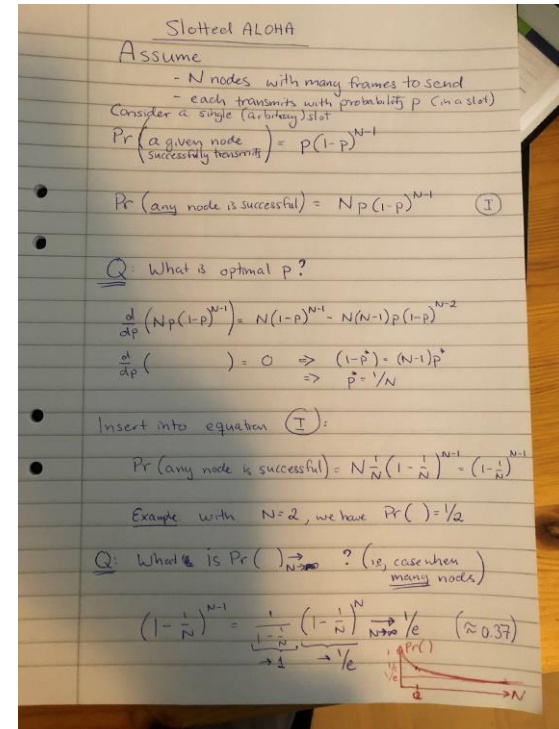 Slotted ALOHA
Assume
- N nodes with many frames to send
- each transmits with probability p (in a slot)
Consider a single (arbitrary) slot
Pr (a given node successfully transmits) = p(1-p)^{N-1}
Pr (any node is successful) = Np(1-p)^{N-1} (I)
Q: What is optimal p?
d/dp (Np(1-p)^{N-1}) = N(1-p)^{N-1} - N(N-1)p(1-p)^{N-2}
d/dp ( ) = 0 => (1-p*) = (N-1)p*
=> p* = 1/N
Insert into equation (I):
Pr (any node is successful) = N 1/N (1 - 1/N)^{N-1} = (1 - 1/N)^{N-1}
Example with N=2, we have Pr( ) = 1/2
Q: What is Pr( ) →_{N→∞} ? (ie, case when many nods)
(1 - 1/N)^{N-1} = 1/(1 - 1/N) (1 - 1/N)^N →_{N→∞} 1/e (≈ 0.37)
→ 1 → 1/e
Pr( )
1
1/e
2
N